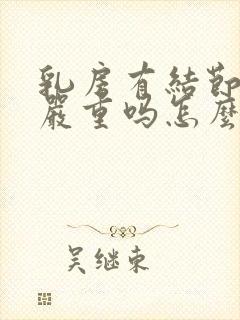 乳房有結節
嚴重吗怎麼
吴继东